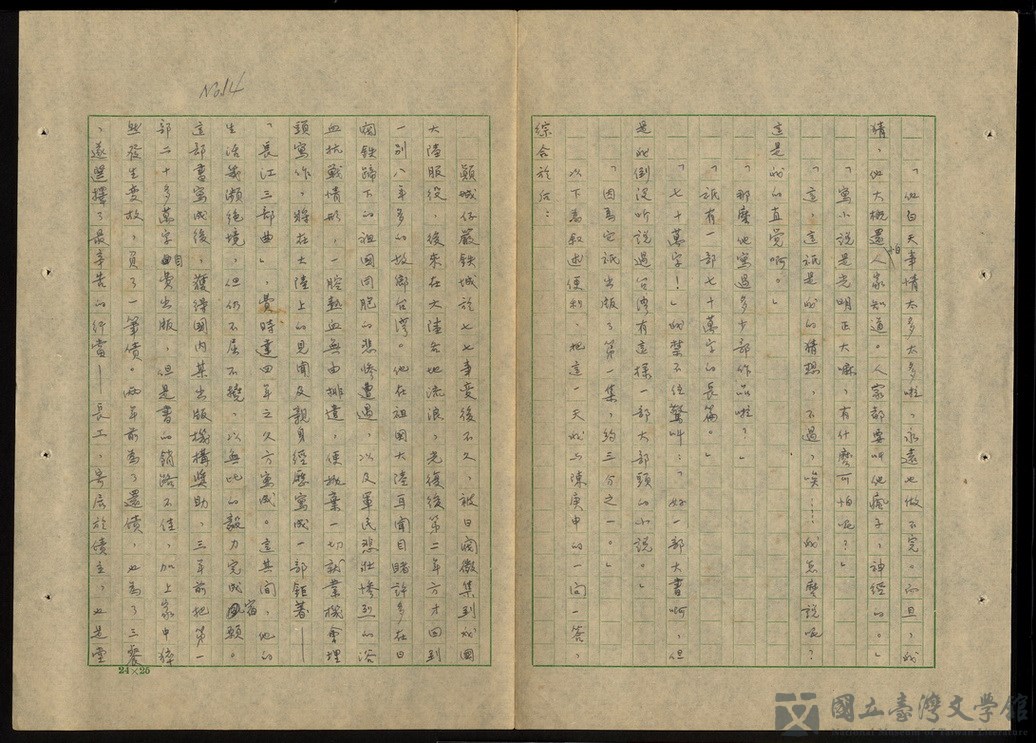 「他白天事情太多太多啦,永遠也做不完。而且,我
猜,他大概還怕人家知道。人家都要叫他瘋子,神經的。」
「寫小說是光明正大嘛,有什麼可怕呢?」
「這,這祇是我的猜想,不過,唉……我怎麼說呢?
這是我的直覺啊。」
「那麼他寫過多少部作品啦?」
「祇有一部七十萬字的長篇。」
「七十萬字!」我禁不住驚叫:「好一部大書啊,但
是我倒沒听說過台灣有這樣一部大部頭的小說。」
「因為它祇出版了第一集,約三分之一。」
以下為敘述便利,把這一天我與陳庚申的一問一答,
綜合於后:
No.14
顧城仔嚴鉄城於七七事變後不久,被日閥徵集到戎國
大陸服役,後來在大陸各地流浪,光復後第二年方才回到
一別八年多的故鄉台灣。他在祖國大陸耳聞目睹許多在日
閥鉄蹄下的祖國同胞的悲慘遭遇,以及軍民悲壯慘烈的浴
血抗戰情形,一腔熱血無由排遣,便拋棄一切就業機會埋
頭寫作,將在大陸上的見聞及親身經歷寫成一部鉅著——
「長江三部曲」,費時達四年之久方寫成。這其間,他的
生活幾瀕絕境,但仍不屈不撓,以無比的毅力完成宿願。
這部書寫成後,獲得國內某出版機構獎助,三年前把第一
部二十多萬字自費出版,但是書的銷路不佳,加上家中
些發生變故,負了一筆債。兩年前為了還債,也為了三餐
,遂選擇了最辛苦的行當——長工,寄居於債主,也是堂
24×25
國立臺灣文學館
National Museum of Taiwan Literature